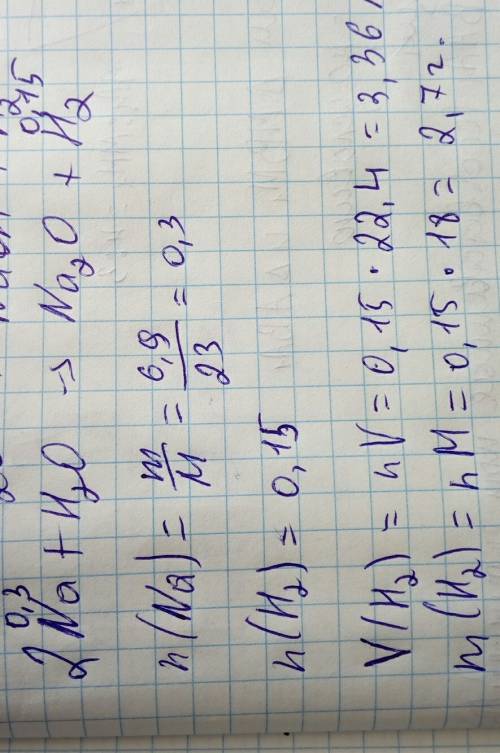 0,3 0,15
2Na + H₂O → Na₂O + H₂
n(Na) = m/M = 6,9/23 = 0,3
n(H₂) = 0,15
V(H₂) = nV = 0,15 · 22,4 = 3,36
m(H₂) = nM = 0,15 · 18 = 2,7г.